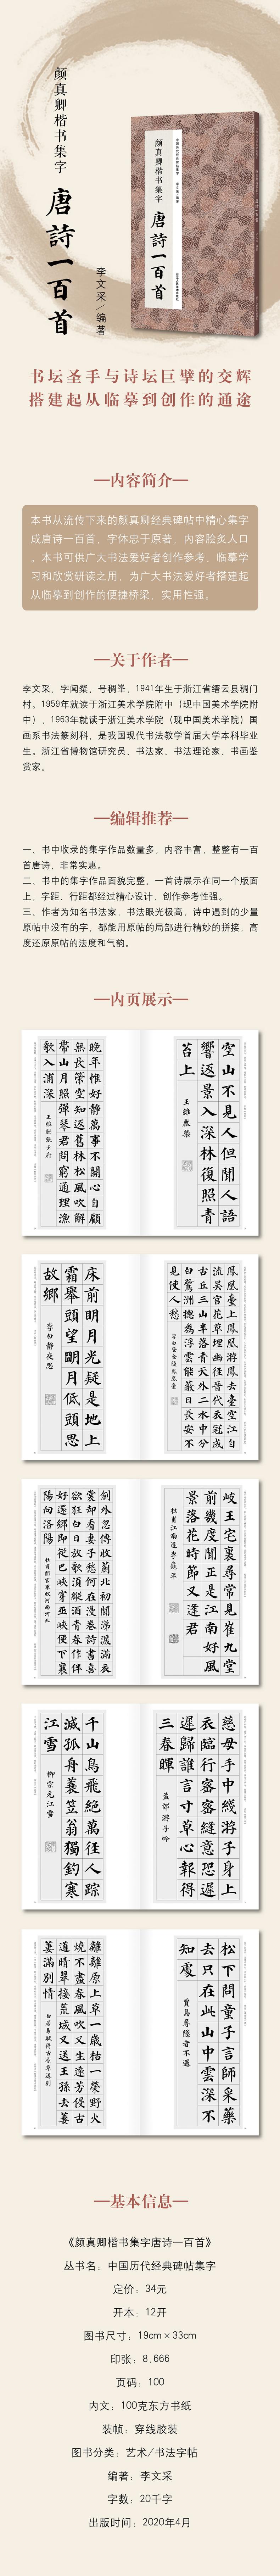 颜真卿楷书集字
唐詩一百首
李文采/编著
颜真卿楷书集字
唐詩一百首
书坛圣手与诗坛巨擘的交辉
搭建起从临摹到创作的通途
—内容简介—
本书从流传下来的颜真卿经典碑帖中精心集字
成唐诗一百首，字体忠于原著，内容脍炙人口
。本书可供广大书法爱好者创作参考，临摹学
习和欣赏研读之用，为广大书法爱好者搭建起
从临摹到创作的便捷桥梁，实用性强。
—关于作者—
李文采，字闻粲，号稠峯，1941年生于浙江省缙云县稠门
村。1959年就读于浙江美术学院附中（现中国美术学院附
中），1963年就读于浙江美术学院（现中国美术学院）国
画系书法篆刻科，是我国现代书法教学首届大学本科毕业
生。浙江省博物馆研究员、书法家、书法理论家、书画鉴
赏家。
—编辑推荐—
一、书中收录的集字作品数量多，内容丰富，整整有一百
首唐诗，非常实惠。
二、书中的集字作品面貌完整，一首诗展示在同一个版面
上，字距、行距都经过精心设计，创作参考性强。
三、作者为知名书法家，书法眼光极高，诗中遇到的少量
原帖中没有的字，都能用原帖的局部进行精妙的拼接，高
度还原原帖的法度和气韵。
—内页展示—
空山不見人但聞人語
響返景入深林復照青
苔上
王維鹿柴
晚年惟好靜萬事不關心自顧
無長策空知返舊林松風吹解
帶山月照彈琴君問窮通理漁
歌入浦深
王維酬張少府
鳳凰臺上鳳凰游鳳去臺空江自
流吳宮花草埋幽徑晉代衣冠成
古丘三山半落青天外二水中分
白鷺洲摠為浮雲能蔽日長安不
見使人愁
李白登金陵鳳凰臺
床前明月光疑是地上
霜舉頭望明月低頭思
故鄉
李白靜夜思
岐王宅裏尋常見崔九堂
前幾度聞正是江南好風
景落花時節又逢君
杜甫江南逢李龜年
劍外忽傳收薊北初聞涕淚滿衣
裳却看妻子愁何在漫卷詩書喜
欲狂白日放歌須縱酒青春作伴
好還鄉即從巴峽穿巫峽便下襄
陽向洛陽
杜甫聞官軍收河南河北
慈母手中綫游子身上
衣臨行密密縫意恐遲
遲歸誰言寸草心報得
三春暉
孟郊游子吟
千山鳥飛絕萬徑人踪
滅孤舟蓑笠翁獨釣寒
江雪
柳宗元江雪
松下問童子言師采藥
去只在此山中雲深不
知處
賈島尋隱者不遇
離離原上草一歲枯一榮野火
燒不盡春風吹又生遠芳侵古
道晴翠接荒城又送王孫去萋
萋滿別情
白居易賦得古原草送別
—基本信息—
《颜真卿楷书集字唐诗一百首》
丛书名：中国历代经典碑帖集字
定价：34元
开本：12开
图书尺寸：19cm×33cm
印张：8.666
页码：100
内文：100克东方书纸
装帧：穿线胶装
图书分类：艺术/书法字帖
编著：李文采
字数：20千字
出版时间：2020年4月